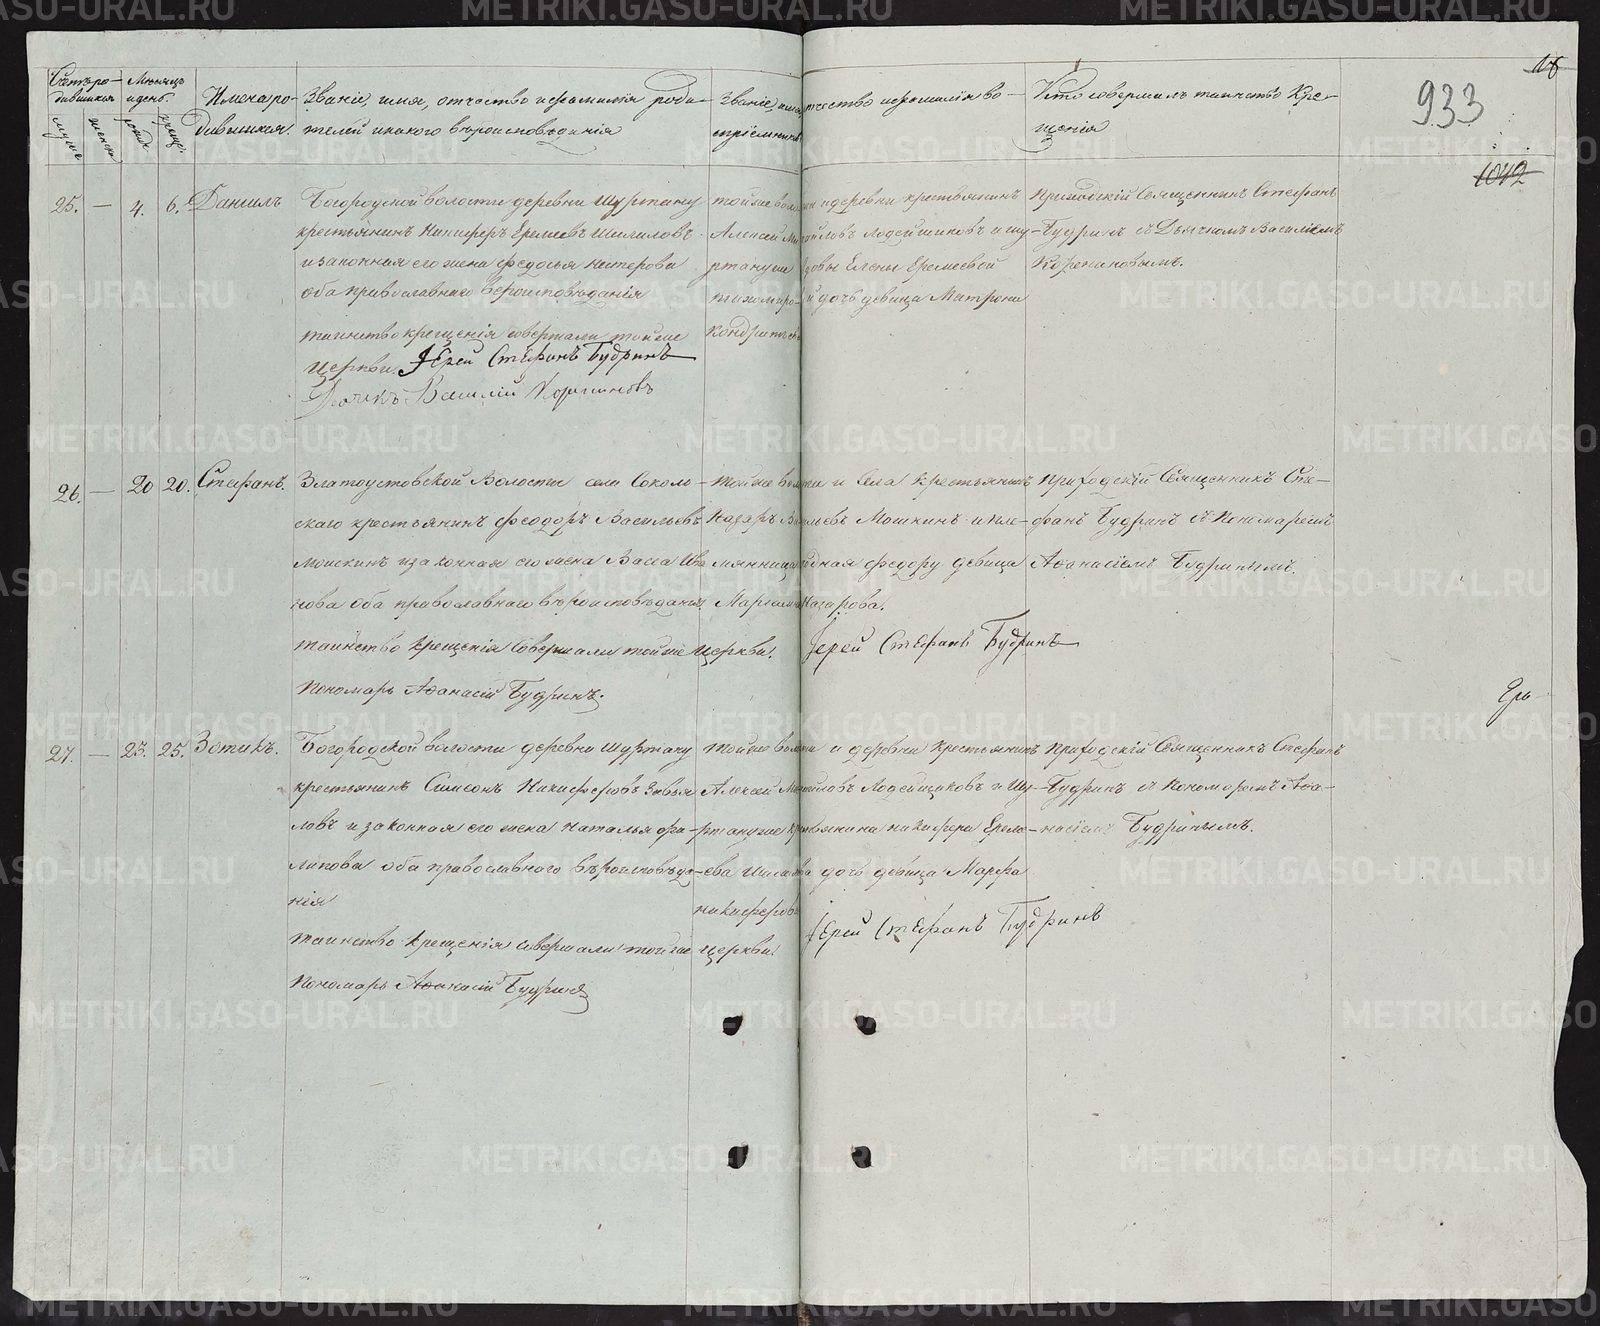 Счетъ ро-
дившихся
мужс.
женск.
Мѣсяцъ
и день.
рожд.
крещ.
Имена ро-
дившихся.
Званіе, имя, отчество и фамилія роди-
телей и какого вѣроисповѣданія
Званіе, имя, отчество и фамилія во-
спріемниковъ
Кто совершалъ таинство Кре-
щенія
18
933
1042
25. — 4. 6. Даніилъ
Богородской волости деревни Шуртану
крестьянинъ Никифоръ Еремеевъ Шиловъ
и законная его жена Федосья Нестерова
оба православнаго вероисповѣданія
таинство крещенія совершали тойже
церкви Іерей Стефанъ Будринъ
Дьячекъ Василій Коряпиновъ
тойже волости и деревни крестьянинъ
Алексей Михайловъ Лодейщиковъ и шу-
ртанской вдовы Елены Еремеевой
дочь девица Матрона
Кондратьева
Приходскій Священникъ Стефанъ
Будринъ съ Дьячкомъ Василіемъ
Коряпиновымъ.
26. — 20 20. Стефанъ.
Златоустовской Волости села Соколь-
скаго крестьянинъ Феодоръ Васильевъ
Мошкинъ и законная его жена Васса Ива
нова оба православнаго вѣроисповѣданія
таинство Крещенія Совершали тойже церкви.
Пономарь Аѳанасій Будринъ.
тойже волости и Села Крестьянинъ
Назаръ Васильевъ Мошкинъ и пле-
мянница родная федору девица
Марья Назарова.
Іерей Стефанъ Будринъ
Приходскій Священникъ Сте-
фанъ Будринъ съ Пономаремъ
Аѳанасіемъ Будринымъ.
27. — 23. 25. Зотикъ.
Богородской волости деревни Шуртану
крестьянинъ Симеонъ Никифоровъ Завья
ловъ и законная его жена Наталья
оба православнаго вѣроисповѣда-
нія
таинство Крещенія совершали тойже церкви.
Пономарь Аѳанасій Будринъ
тойже волости и деревни Крестьянинъ
Алексей Михайловъ Лодейщиковъ и Шу-
крестьянина Никифора Ереме-
ева дочь девица Марфа
никифорова
Іерей Стефанъ Будринъ
Приходскій Священникъ Стефанъ
Будринъ съ Пономаремъ Аѳа-
насіемъ Будринымъ.
METRIKI.GASO-URAL.RU